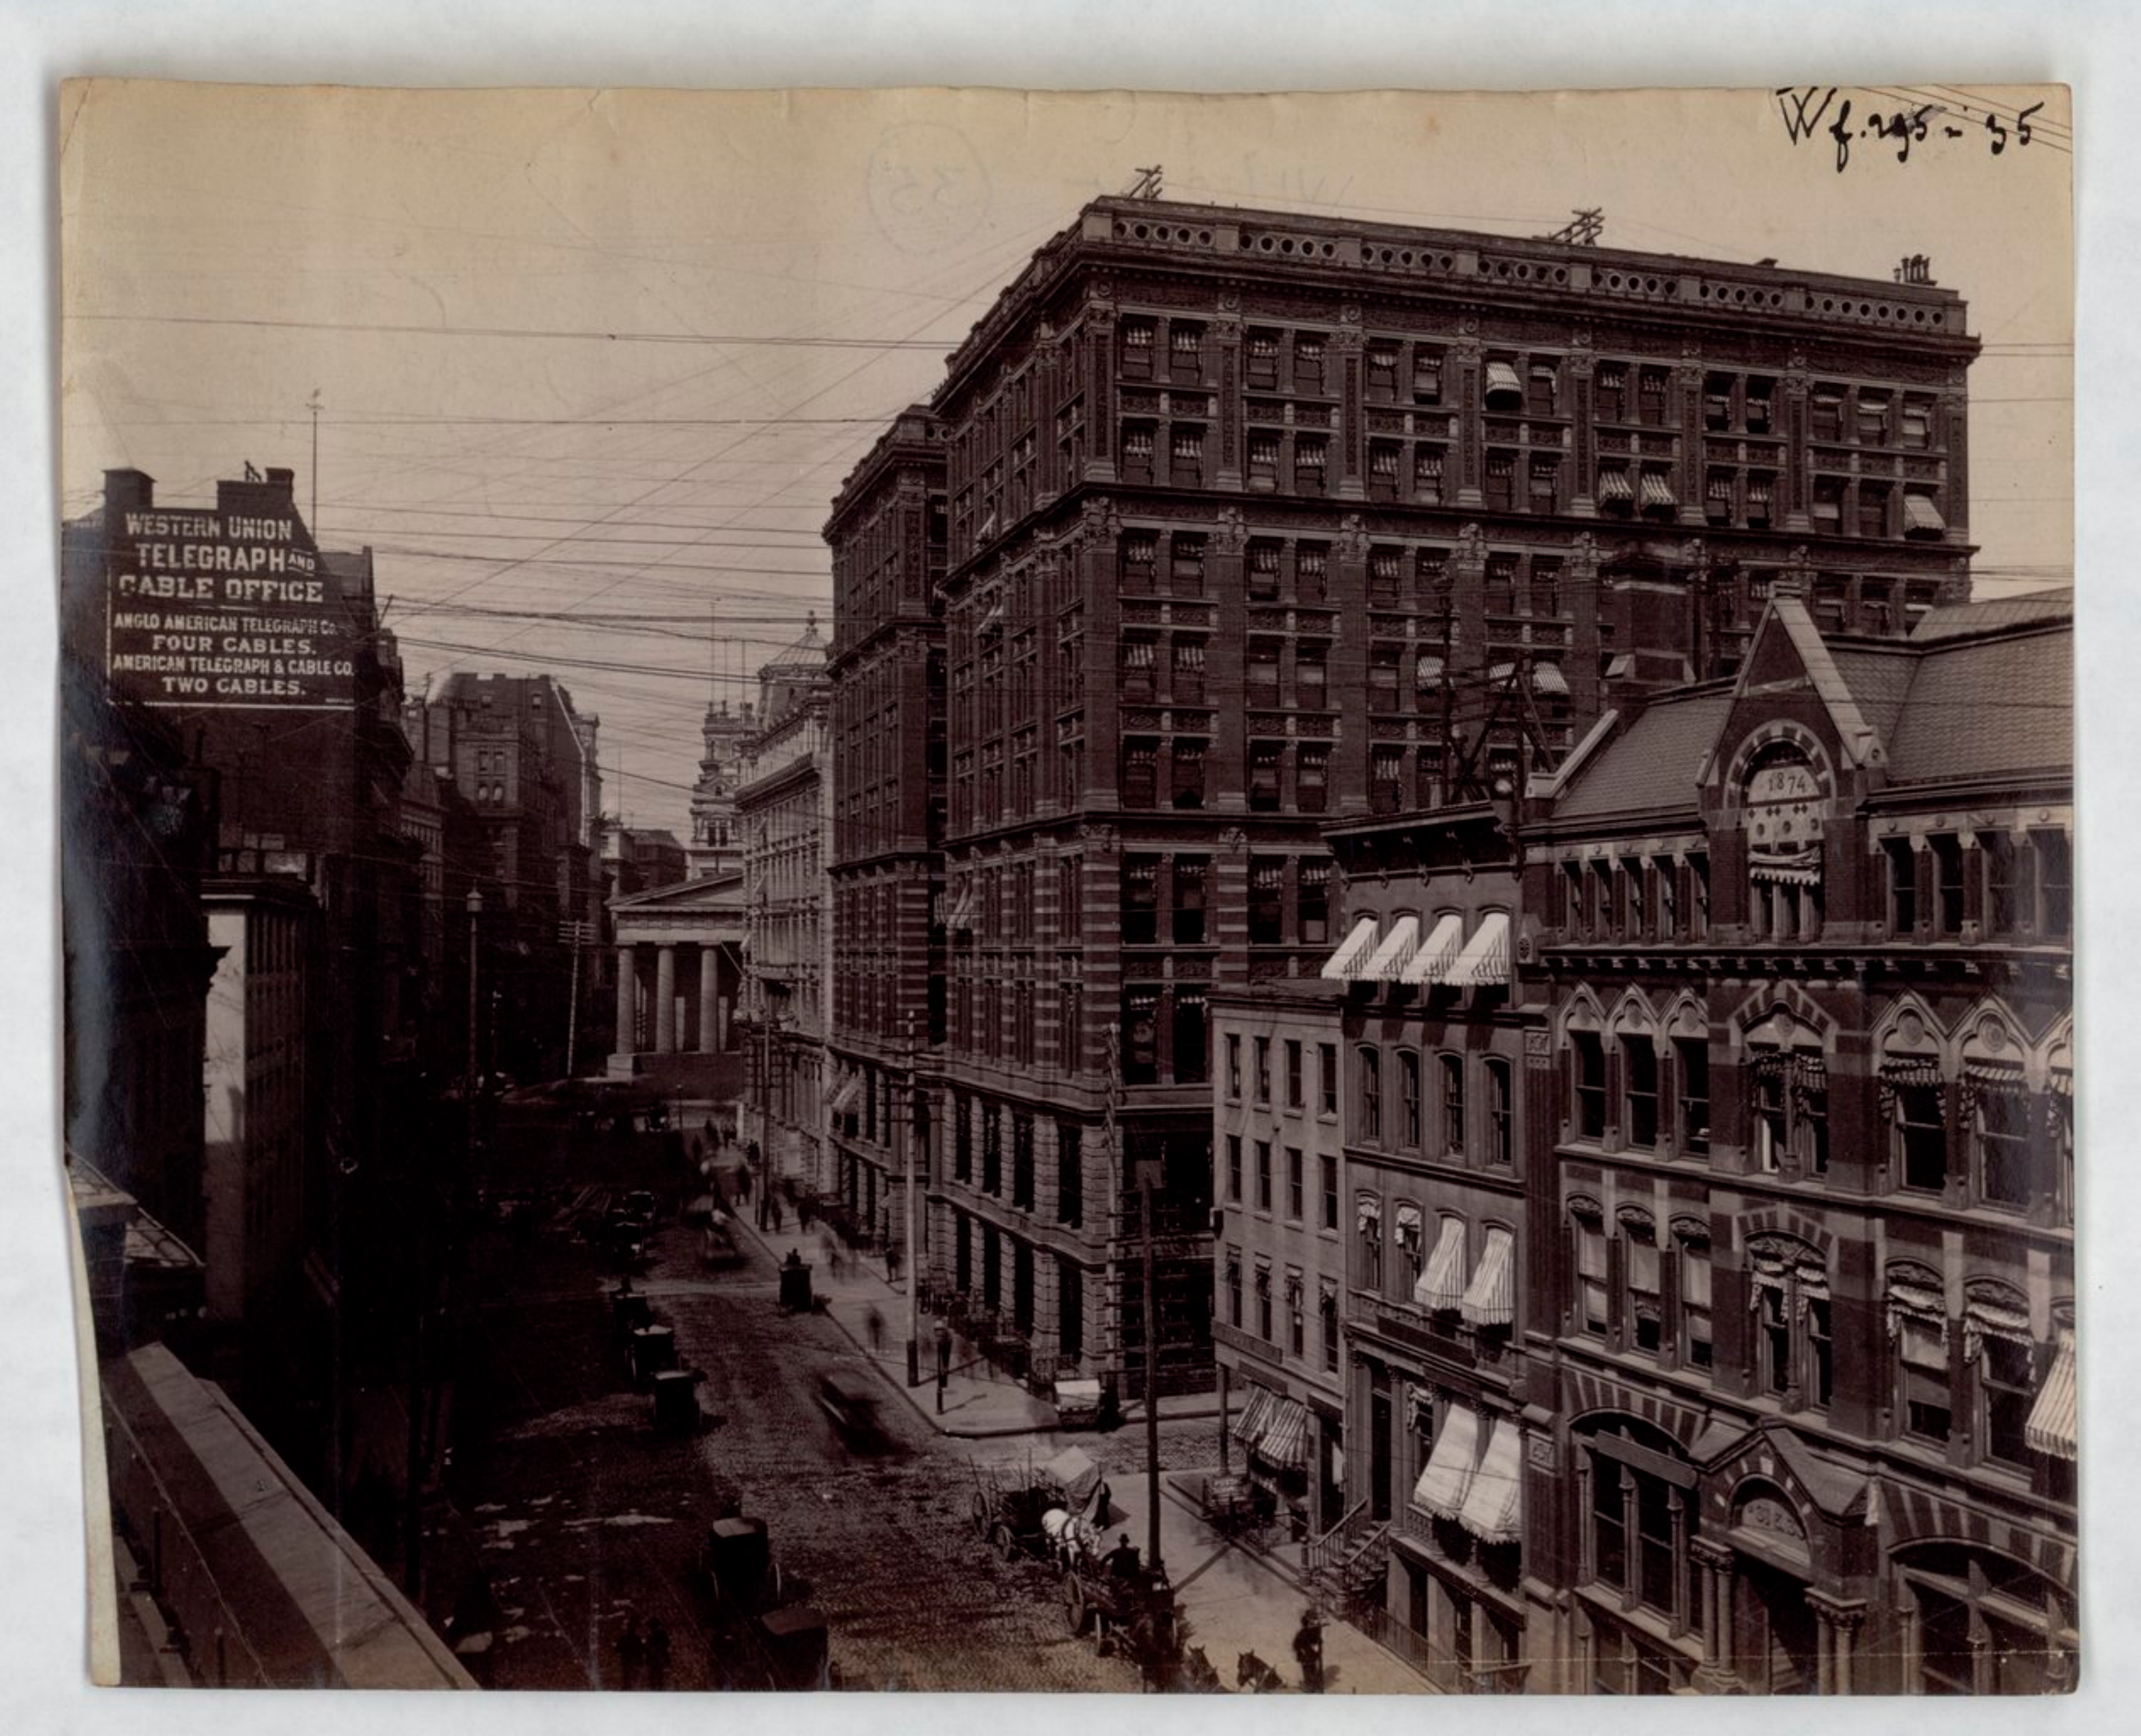 Wf. 295 - 35
WESTERN UNION
TELEGRAPH AND
CABLE OFFICE
ANGLO AMERICAN TELEGRAPH Co.
FOUR CABLES.
AMERICAN TELEGRAPH & CABLE CO.
TWO CABLES.
1874
35